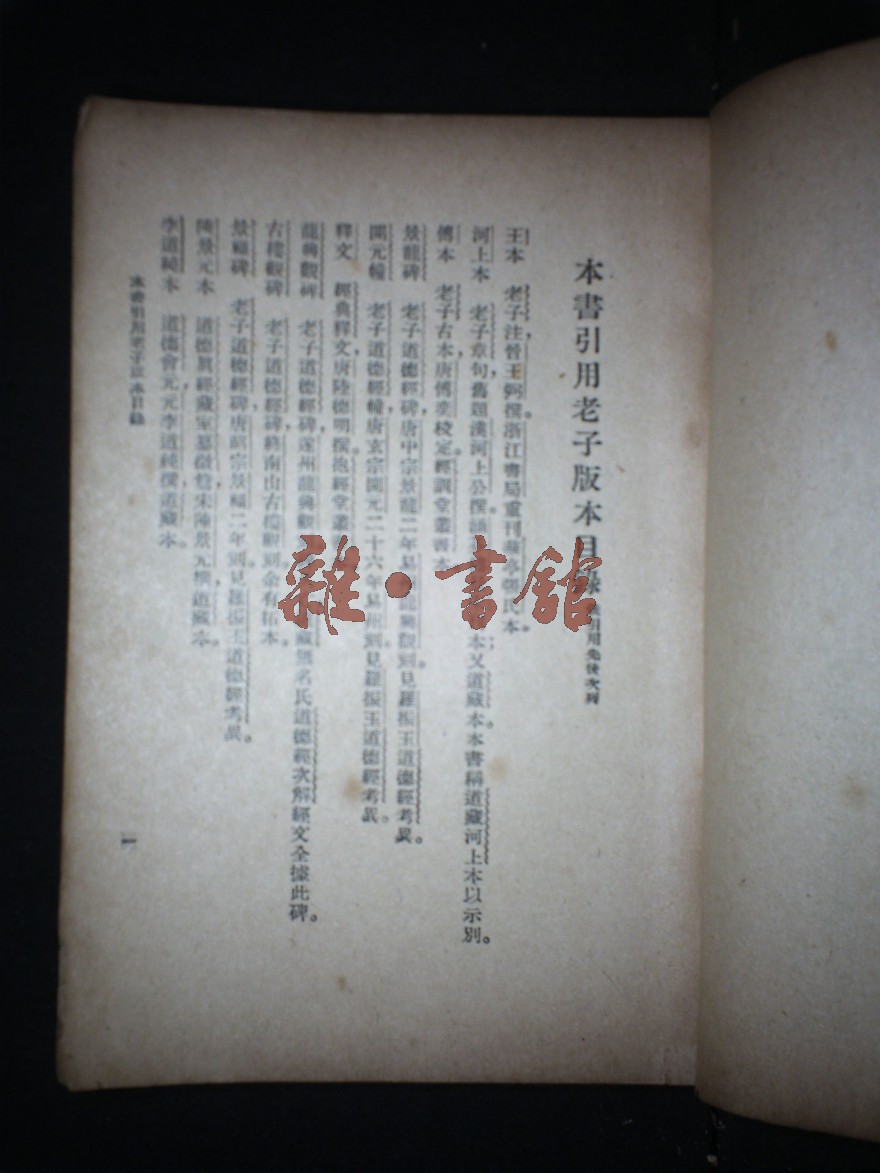 本書引用老子版本目錄 引用先後次列
王本 老子注晉王弼撰。浙江書局重刊 本。
河上本 老子章句舊題漢河上公撰。 本又道藏本。本書稱道藏河上本以示別。
傅本 老子古本唐傅奕校定。經訓堂叢書
景龍碑 老子道德經碑，唐中宗景龍二年易 龍興觀刻。見羅振玉道德經考異。
開元幢 老子道德經幢，唐玄宗開元二十六年易州刻。見羅振玉道德經考異。
釋文 經典釋文唐陸德明撰。抱經堂叢
龍興觀碑 老子道德經碑，遂州龍興觀 藏無名氏道德經次解經文全據此碑。
古樓觀碑 老子道德經碑，終南山古樓觀刻。余有拓本。
景福碑 老子道德經碑，唐昭宗景福二年刻。見羅振玉道德經考異。
陳景元本 道德眞經藏室纂微篇，宋陳景元撰。道藏本。
李道純本 道德會元，元李道純撰。道藏本。
本書引用老子版本目錄
一
雜·書館